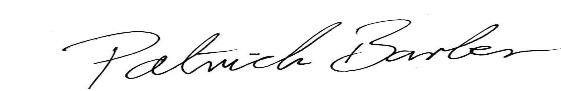 Patrick Barber